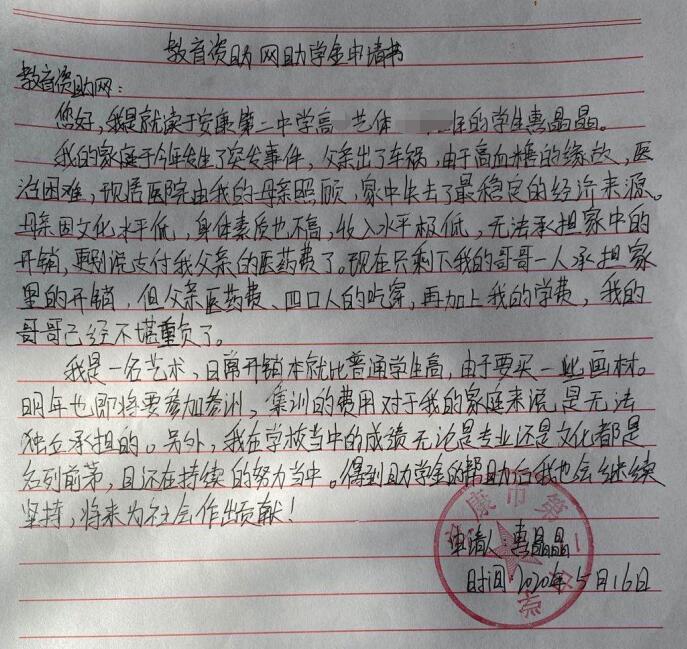 教育资助网助学金申请书
教育资助网：
您好，我是就读于安康第二中学高 艺体 年的学生惠晶晶。
我的家庭于今年发生了突发事件，父亲出了车祸，由于高血糖的缘故，医
治困难，现居医院由我的母亲照顾，家中失去了最稳定的经济来源。
母亲因文化水平低，身体素质也不高，收入水平极低，无法承担家中的
开销，更别说支付我父亲的医药费了。现在只剩下我的哥哥一人承担家
里的开销，但父亲医药费、四口人的吃穿，再加上我的学费，我的
哥哥已经不堪重负了。
我是一名艺术，日常开销本就比普通学生高，由于要买一些画材。
明年也即将要参加参训，集训的费用对于我的家庭来说是无法
独立承担的。另外，我在学校当中的成绩无论是专业还是文化都是
名列前茅，且还在持续的努力当中。得到助学金的帮助后我也会继续
坚持，将来为社会作出贡献！
申请人：惠晶晶
时间：2020年5月16日
康市第二